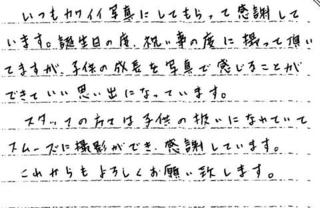 いつもカワイイ写真にしてもらって感謝して
います。誕生日の度、祝い事の度に撮って頂い
てますが、子供の成長を写真で感じることが
できていい思い出になっています。
スタッフの方々は子供の扱いになれていて
スムーズに撮影ができ、感謝しています。
これからもよろしくお願い致します。